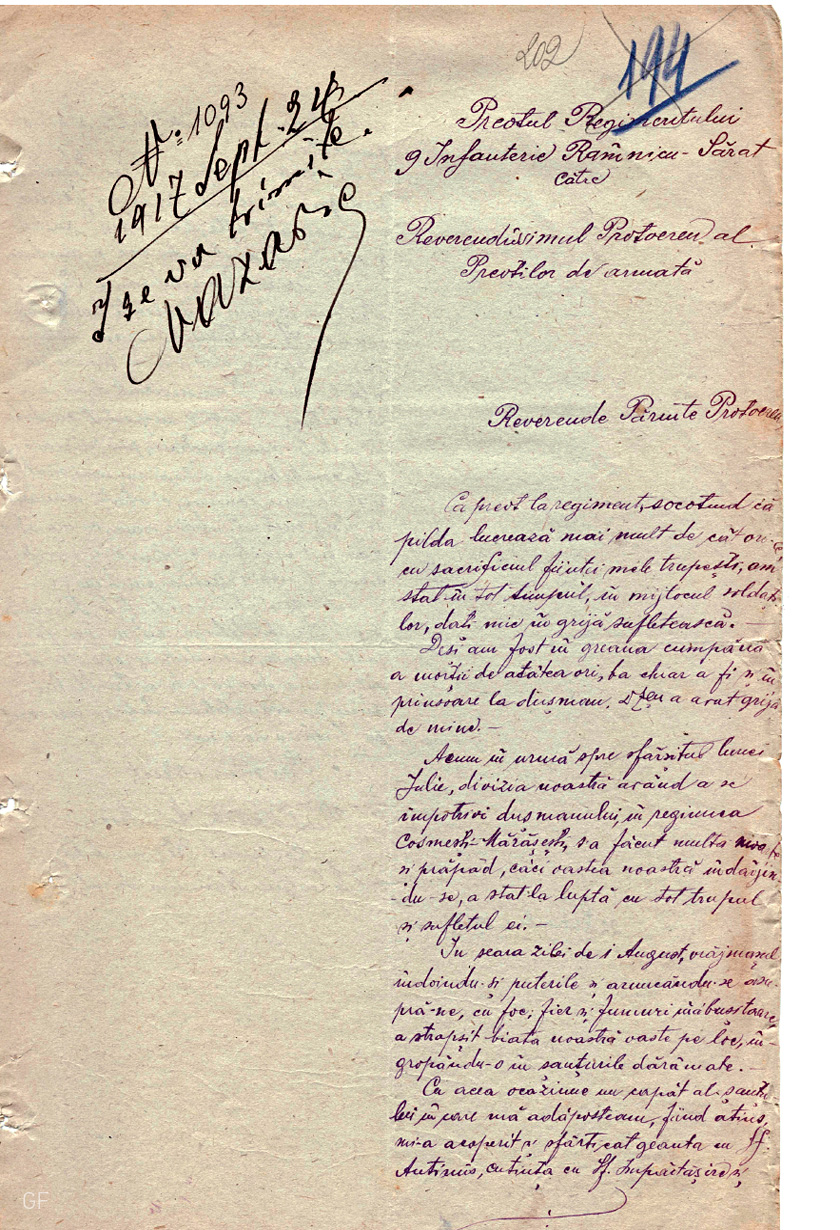 202
194
No: 1093
1917 Sept. 24
I se va trimite.
Preotul Regimentului
9 Infanterie Râmnicu-Sărat
către
Reverendisimul Protoereu al
Preoților de armată
Reverende Părinte Protoereu
Ca preot la regiment, socotind că
pilda lucrează mai mult de cât ori-ce
cu sacrificiul ființei mele trupești, am
stat în tot timpul, în mijlocul soldați-
lor, dați mie în grijă sufletească. —
Deși am fost în greaua cumpănă
a morții de atâtea ori, ba chiar a fi și în
prinsoare la dușman, D-zeu a avut grijă
de mine. —
Acum în urmă spre sfârșitul lunei
Iulie, divizia noastră având a se
împotrivi dușmanului, în regiunea
Cosmești-Mărășești, s-a făcut multă
și prăpăd, căci oastea noastră îndârjin-
-du-se, a stat la luptă cu tot trupul
și sufletul ei. —
În seara zilei de 1 August, vrăjmașul
îndoindu-și puterile și aruncându-se asu-
pră-ne, cu foc, fier și fumuri înăbușitoare,
a stropșit biata noastră oaste pe loc, în-
gropându-o în șanțurile dărâmate. —
Cu acea ocaziune un capăt al șanțu-
lui în care mă adăposteam, fiind atins,
mi-a acoperit și sfârticat geanta cu Sf.
Antimis, cutiuța cu Sf. Împărtășire și
GF